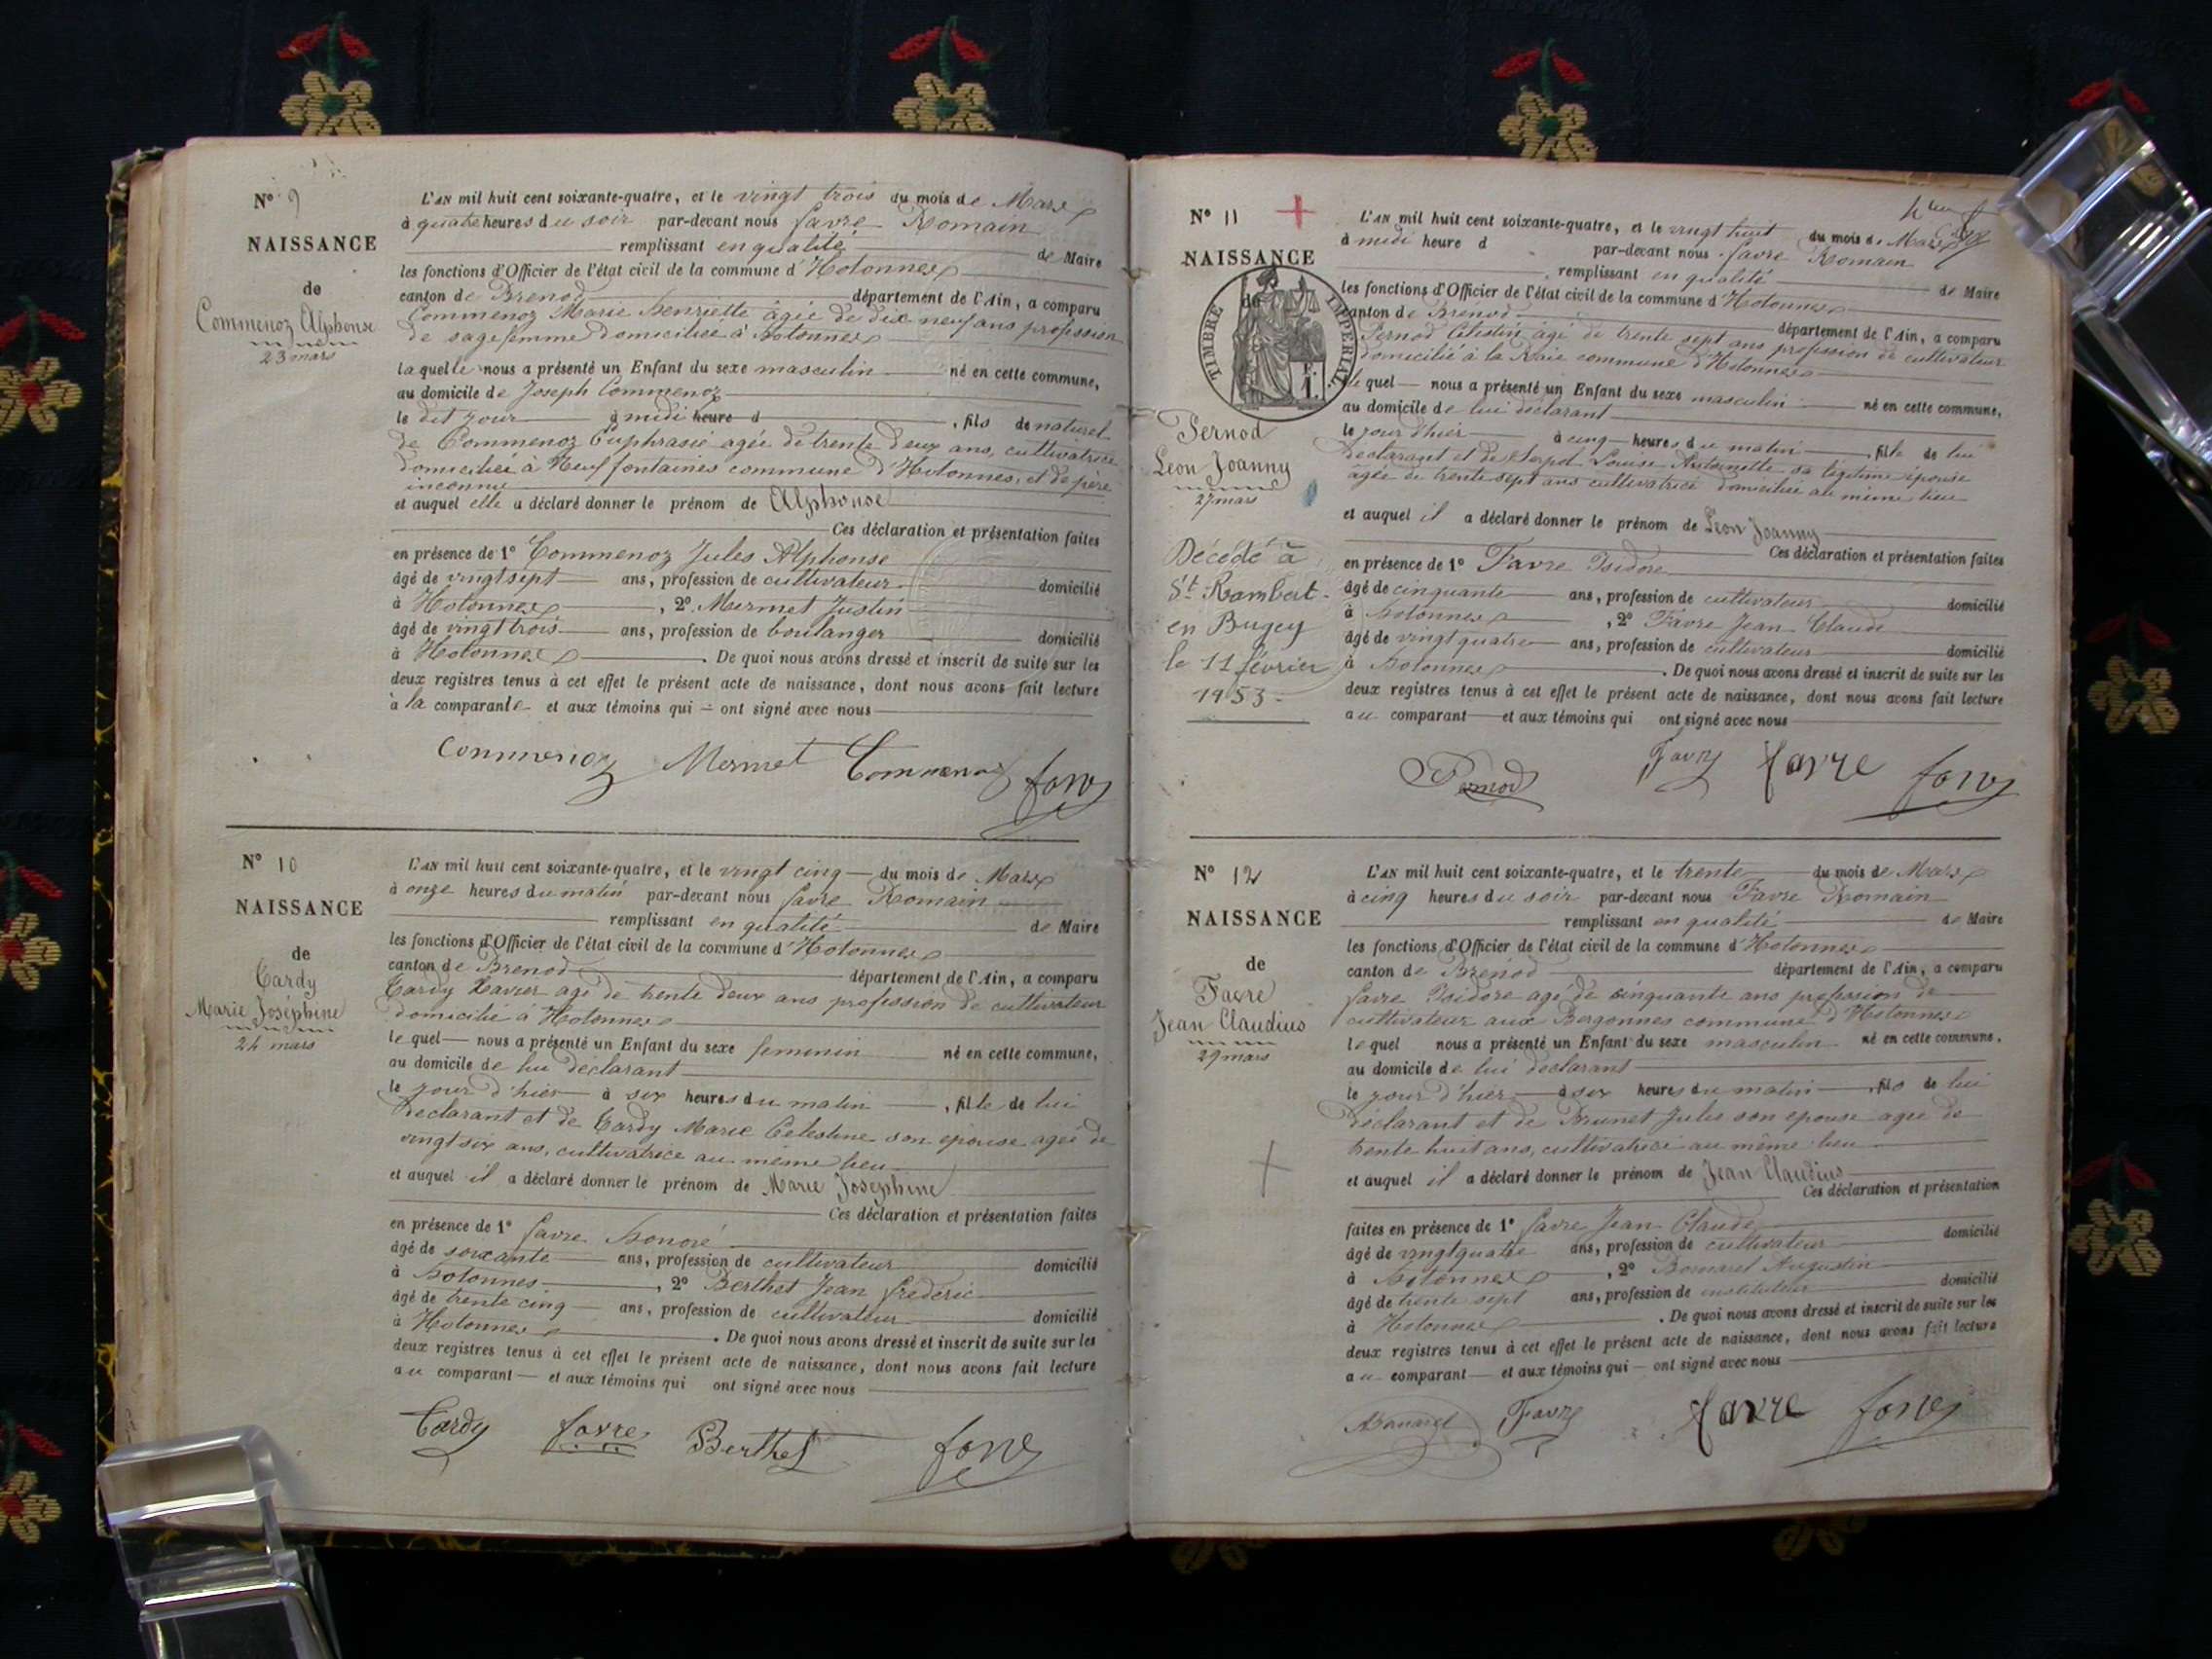 N° 9
NAISSANCE
de
Commenoz Alphonse
23 mars
L'AN mil huit cent soixante-quatre, et le vingt trois du mois de Mars
à quatre heures du soir par-devant nous favre Romain
remplissant en qualité de Maire
les fonctions d'Officier de l'état civil de la commune d'Hotonnes
canton de Brenod département de l'Ain, a comparu
Commenoz Marie henriette âgée de dix neuf ans profession
de sagefemme domiciliée à hotonnes
laquelle nous a présenté un Enfant du sexe masculin né en cette commune,
au domicile de Joseph Commenoz
le dit jour à midi heure d , fils de naturel
de Commenoz Euphrasie agée de trente deux ans, cultivatrice
domiciliée à Neuf fontaines commune d'Hotonnes, et de père
inconnu
et auquel elle a déclaré donner le prénom de Alphonse
Ces déclaration et présentation faites
en présence de 1° Commenoz Jules Alphonse
âgé de vingt sept ans, profession de cultivateur domicilié
à Hotonnes , 2° Mermet Justin
âgé de vingt trois ans, profession de boulanger domicilié
à Hotonnes . De quoi nous avons dressé et inscrit de suite sur les
deux registres tenus à cet effet le présent acte de naissance, dont nous avons fait lecture
à la comparante et aux témoins qui ont signé avec nous
Commenoz Mermet Commenoz favre
N° 10
NAISSANCE
de
Tardy
Marie Joséphine
24 mars
L'AN mil huit cent soixante-quatre, et le vingt cinq du mois de Mars
à onze heures du matin par-devant nous favre Romain
remplissant en qualité de Maire
les fonctions d'Officier de l'état civil de la commune d'Hotonnes
canton de Brenod département de l'Ain, a comparu
Tardy Xavier agé de trente deux ans profession de cultivateur
domicilié à Hotonnes
lequel nous a présenté un Enfant du sexe feminin né en cette commune,
au domicile de lui déclarant
le jour d'hier à six heures du matin , fille de lui
déclarant et de Tardy Marie Celestine son épouse agée de
vingt six ans, cultivatrice au même lieu
et auquel il a déclaré donner le prénom de Marie Josephine
Ces déclaration et présentation faites
en présence de 1° favre honoré
âgé de soixante ans, profession de cultivateur domicilié
à hotonnes , 2° Berthet Jean frederic
âgé de trente cinq ans, profession de cultivateur domicilié
à Hotonnes . De quoi nous avons dressé et inscrit de suite sur les
deux registres tenus à cet effet le présent acte de naissance, dont nous avons fait lecture
au comparant et aux témoins qui ont signé avec nous
Tardy favre Berthet favre
N° 11
NAISSANCE
de
TIMBRE IMPERIAL
F. 1.
Pernod
Leon Joanny
27 mars
Décédé à
St Rambert
en Bugey
le 11 février
1953
L'AN mil huit cent soixante-quatre, et le vingt huit du mois de Mars
à midi heure d par-devant nous favre Romain
remplissant en qualité de Maire
les fonctions d'Officier de l'état civil de la commune d'Hotonnes
canton de Brénod département de l'Ain, a comparu
Pernod Célestin âgé de trente sept ans profession de cultivateur
domicilié à la Raie commune d'Hotonnes
lequel nous a présenté un Enfant du sexe masculin né en cette commune,
au domicile de lui déclarant
le jour d'hier à cinq heures du matin , fils de lui
déclarant et de Serpol Louise Antoinette sa légitime épouse
agée de trente sept ans cultivatrice domiciliée au même lieu
et auquel il a déclaré donner le prénom de Leon Joanny
Ces déclaration et présentation faites
en présence de 1° Favre Isidore
âgé de cinquante ans, profession de cultivateur domicilié
à hotonnes , 2° Favre Jean Claude
âgé de vingt quatre ans, profession de cultivateur domicilié
à hotonnes . De quoi nous avons dressé et inscrit de suite sur les
deux registres tenus à cet effet le présent acte de naissance, dont nous avons fait lecture
au comparant et aux témoins qui ont signé avec nous
Pernod Favre favre favre
N° 12
NAISSANCE
de
Favre
Jean Claudius
29 mars
L'AN mil huit cent soixante-quatre, et le trente du mois de Mars
à cinq heures du soir par-devant nous Favre Romain
remplissant en qualité de Maire
les fonctions d'Officier de l'état civil de la commune d'Hotonnes
canton de Brénod département de l'Ain, a comparu
favre Isidore agé de cinquante ans profession de
cultivateur aux Bergonnes commune d'Hotonnes
lequel nous a présenté un Enfant du sexe masculin né en cette commune,
au domicile de lui déclarant
le jour d'hier à six heures du matin , fils de lui
déclarant et de Brunet Julie son epouse agée de
trente huit ans, cultivatrice au même lieu
et auquel il a déclaré donner le prénom de Jean Claudius
Ces déclaration et présentation
faites en présence de 1° favre Jean Claude
âgé de vingt quatre ans, profession de cultivateur domicilié
à hotonnes , 2° Bonarel Augustin
âgé de trente sept ans, profession de instituteur domicilié
à Hotonnes . De quoi nous avons dressé et inscrit de suite sur les
deux registres tenus à cet effet le présent acte de naissance, dont nous avons fait lecture
au comparant et aux témoins qui ont signé avec nous
Bonarel Favre favre favre